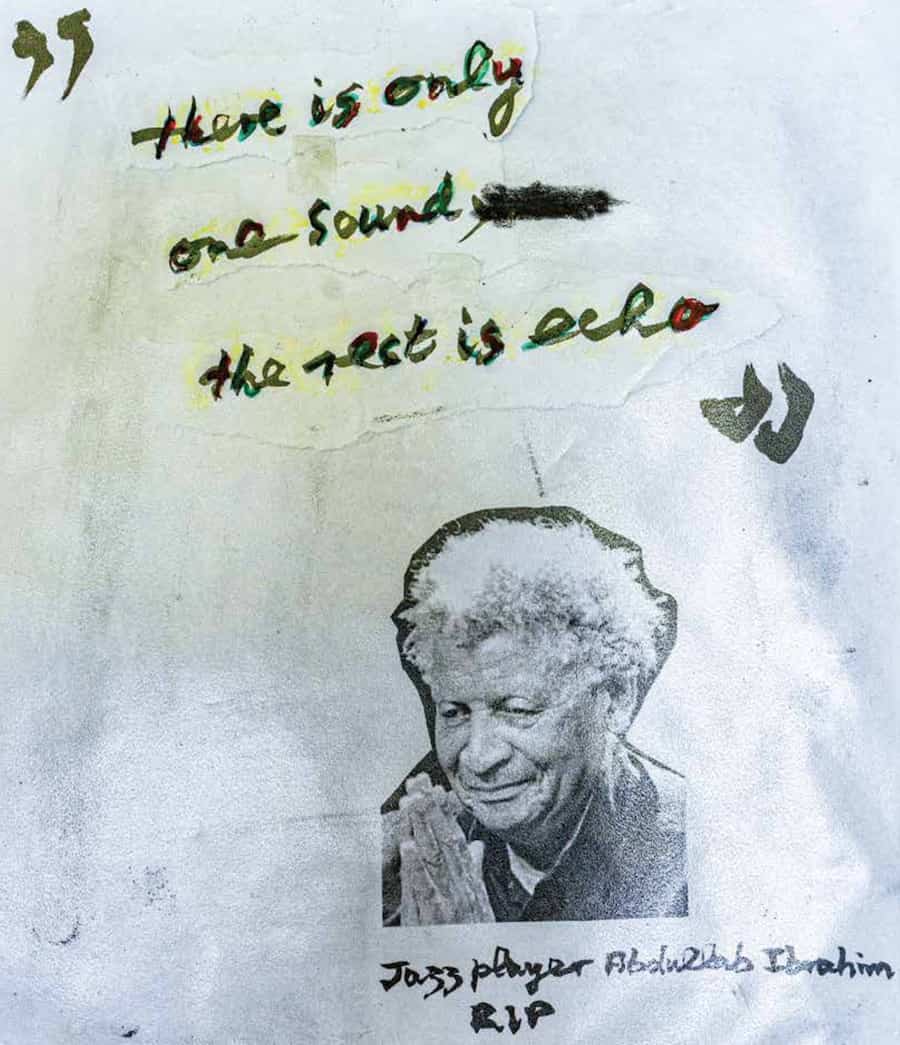 ”
there is only
one sound,
the rest is echo
”
Jazz player Abdullah Ibrahim
RIP